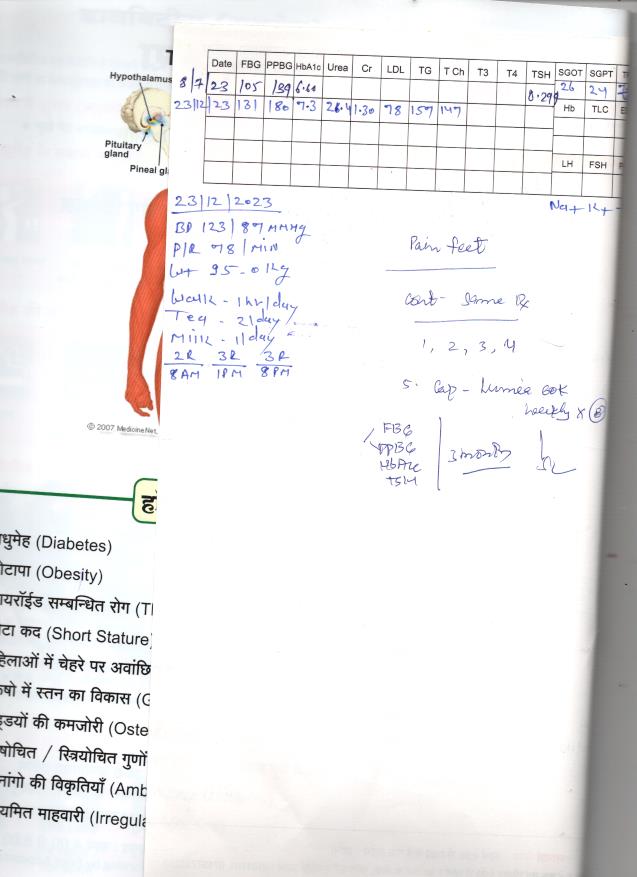 T
Hypothalamus
Pituitary
gland
Pineal gl
© 2007 MedicineNet,
Date FBG PPBG HbA1c Urea Cr LDL TG T Ch T3 T4 TSH SGOT SGPT
8/7/23 105 139 6.60 8.299 26 24
23/12/23 131 180 7.3 26.4 1.30 78 157 147
Hb TLC
LH FSH
Na+ K+
23/12/2023
BP 123/87 mmHg
P/R 78/Min
Wt 95-0 Kg
Walk - 1hr/day
Tea - 2/day
Milk - 1/day
2R 3R 3R
8AM 1PM 8PM
Pain feet
Cont - Same Rx
1, 2, 3, 4
5. Cap - Lumia 60K
weekly x 8
FBG
PPBG
HbA1c
TSH
3 months
ह
धुमेह (Diabetes)
ोटापा (Obesity)
ायरॉईड सम्बन्धित रोग (T
टा कद (Short Stature)
हिलाओं में चेहरे पर अवांछि
रुषो में स्तन का विकास (G
ड्डयों की कमजोरी (Oste
षोचित / स्त्रियोचित गुणों
नांगो की विकृतियाँ (Amb
यमित माहवारी (Irregula